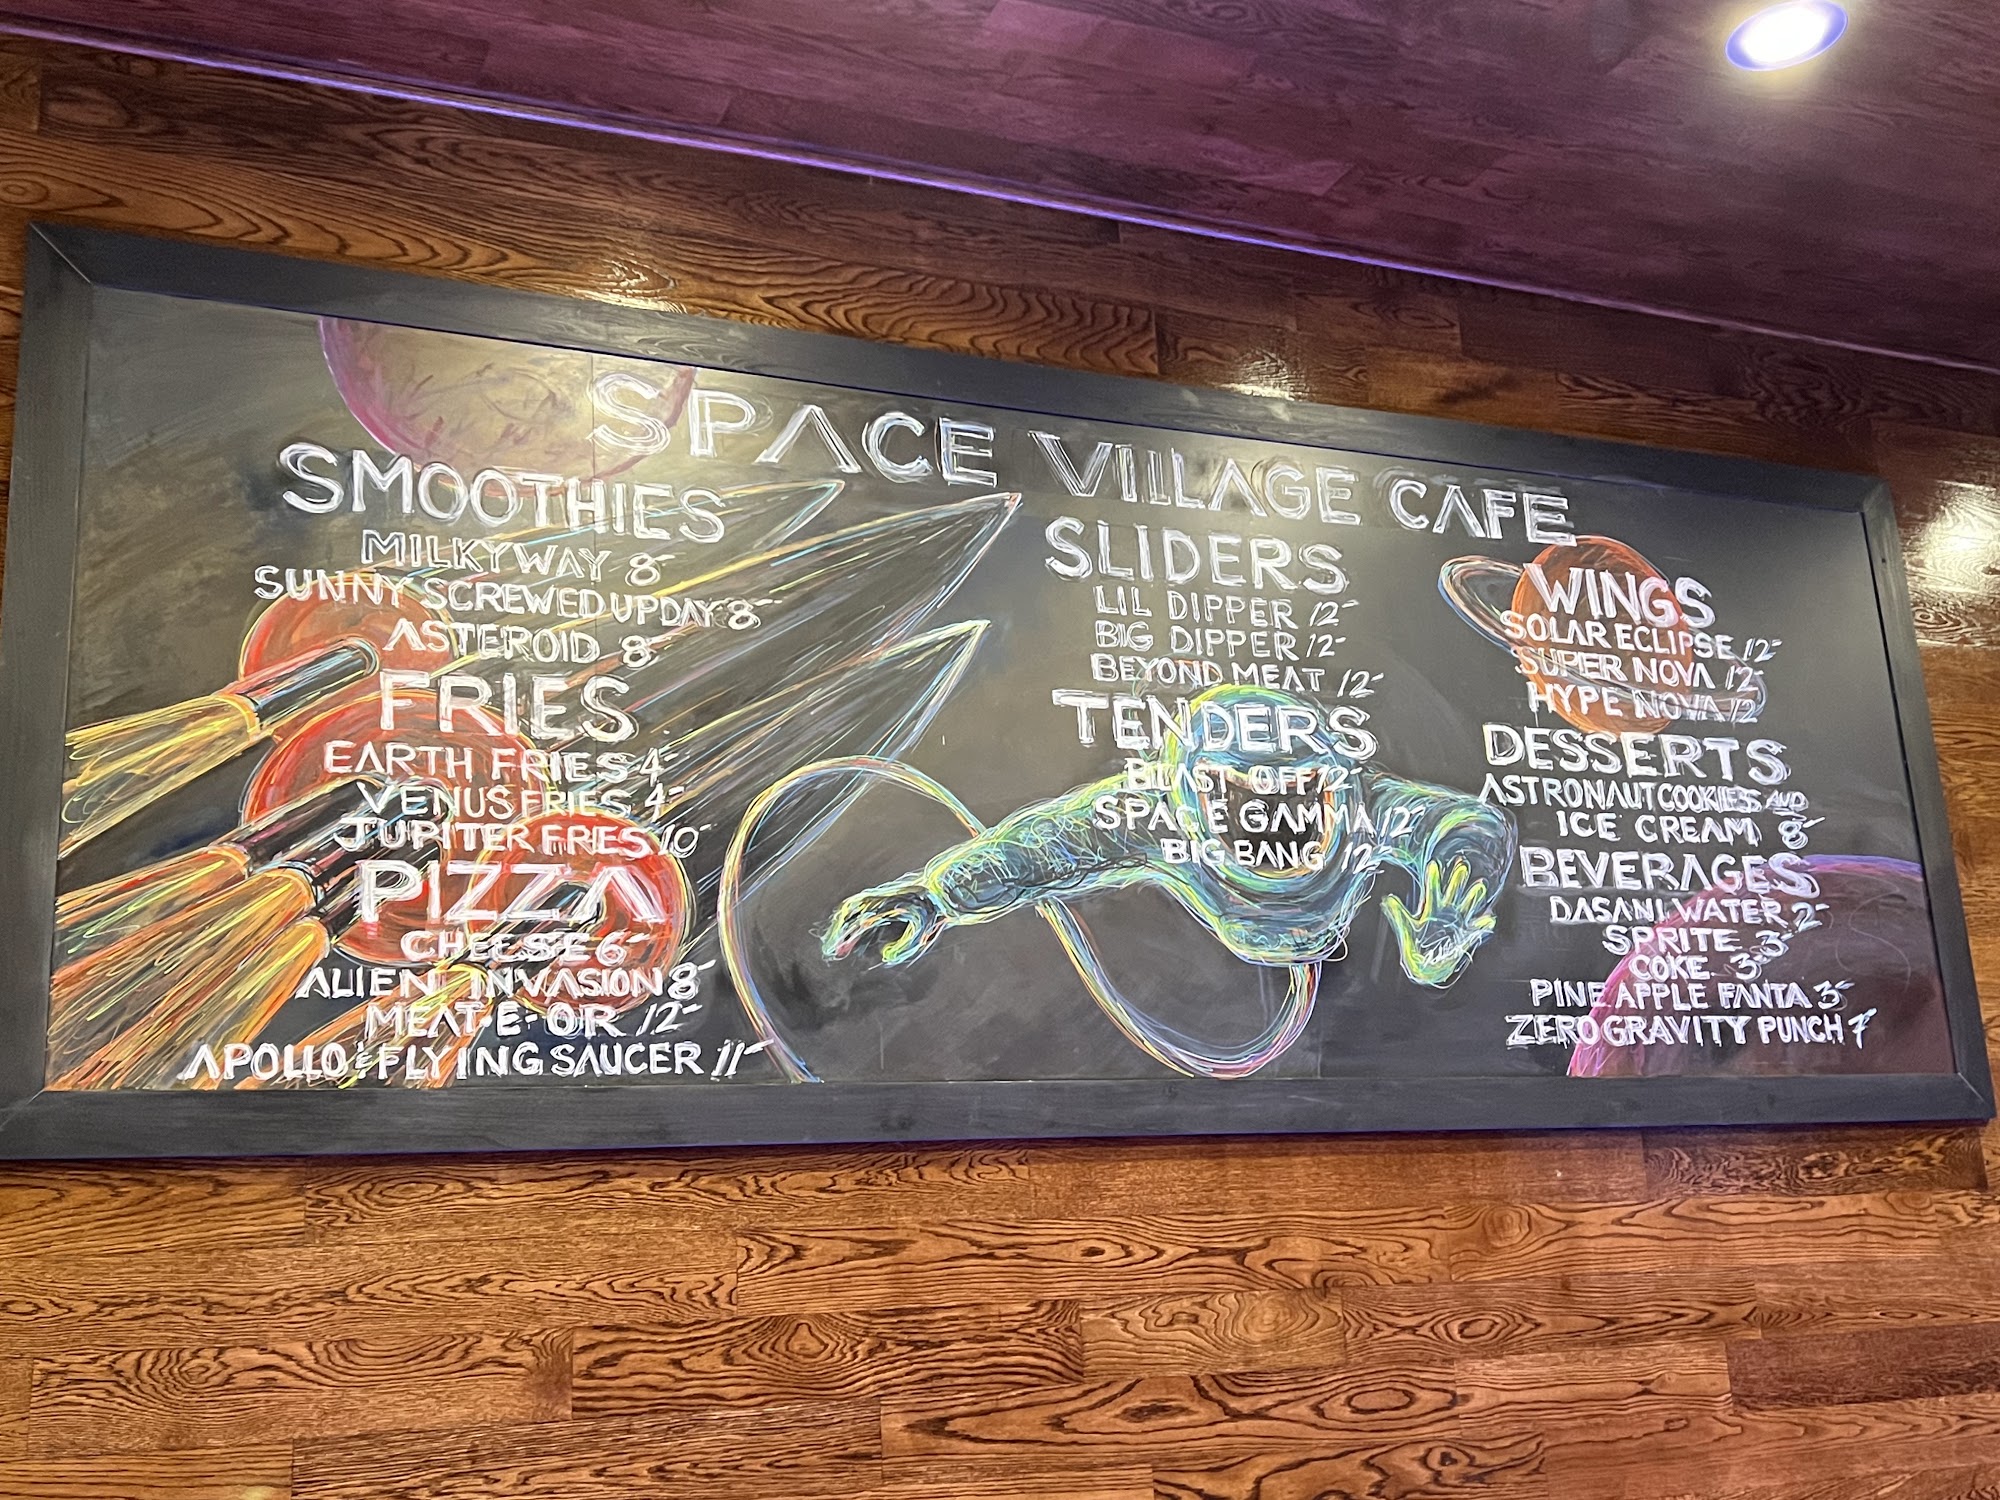 SPACE VILLAGE CAFE
SMOOTHIES
MILKY WAY 8-
SUNNY SCREWED UP DAY 8-
ASTEROID 8-
FRIES
EARTH FRIES 4-
VENUS FRIES 4-
JUPITER FRIES 10-
PIZZA
CHEESE 6-
ALIEN INVASION 8-
MEAT-E-OR 12-
APOLLO & FLYING SAUCER 11-
SLIDERS
LIL DIPPER 12-
BIG DIPPER 12-
BEYOND MEAT 12-
TENDERS
BLAST OFF 12-
SPACE GAMMA 12-
BIG BANG 12-
WINGS
SOLAR ECLIPSE 12-
SUPER NOVA 12-
HYPE NOVA 12
DESSERTS
ASTRONAUT COOKIES AND
ICE CREAM 8-
BEVERAGES
DASANI WATER 2-
SPRITE 3-
COKE 3-
PINEAPPLE FANTA 3-
ZERO GRAVITY PUNCH 7-